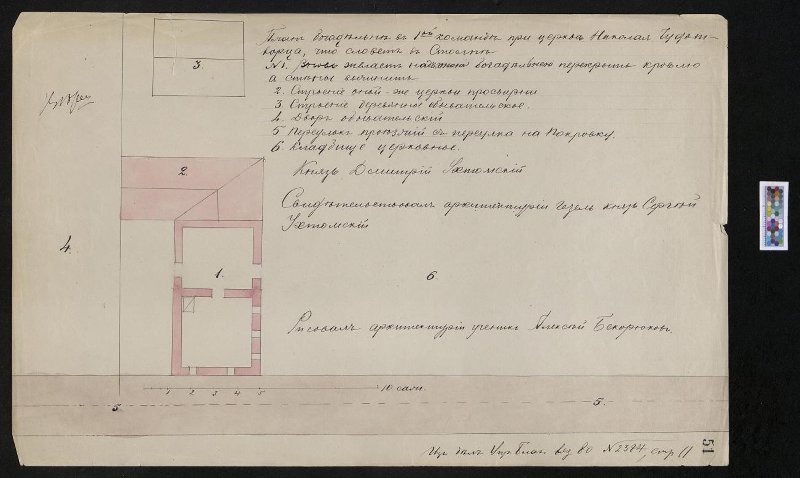 Планъ богадѣльнѣ въ 1ой командѣ при церкви Николая Чудотворца, что словетъ въ Столпахъ
№1. желаетъ богадѣльною перекрыть кровлю
а стѣны вычинить
2. Строение оной-же церкви просвирни
3. Строение деревянное обывательское.
4. Дворъ обывательскій
5 Переулокъ проѣзжій съ переулка на Покровку.
6. Кладбище церковное.
Князь Дмитрій Ухтомскій
Свидѣтельствовалъ архитектуріи гезель князь Сергѣй
Ухтомскій
Рисовалъ архитектуріи ученикъ Алексѣй
3.
2.
4.
1.
6.
1 2 3 4 5 10 саж.
5. 5.
Упр. Благ. вяз 80 №2394, стр 11
51